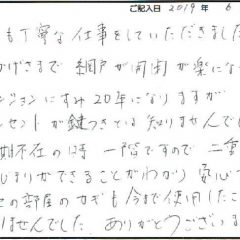 ご記入日 2019年 6
も丁寧な仕事をしていただきました
かげさまで 網戸が開閉が楽にな
ンションにすみ20年になりますが
ンセントが鍵つきとは知りませんで
期不在の時 一階ですので 二重
じまりができることがわかり 安心
の部屋のカギも今まで使用したこ
ませんでした ありがとうございま